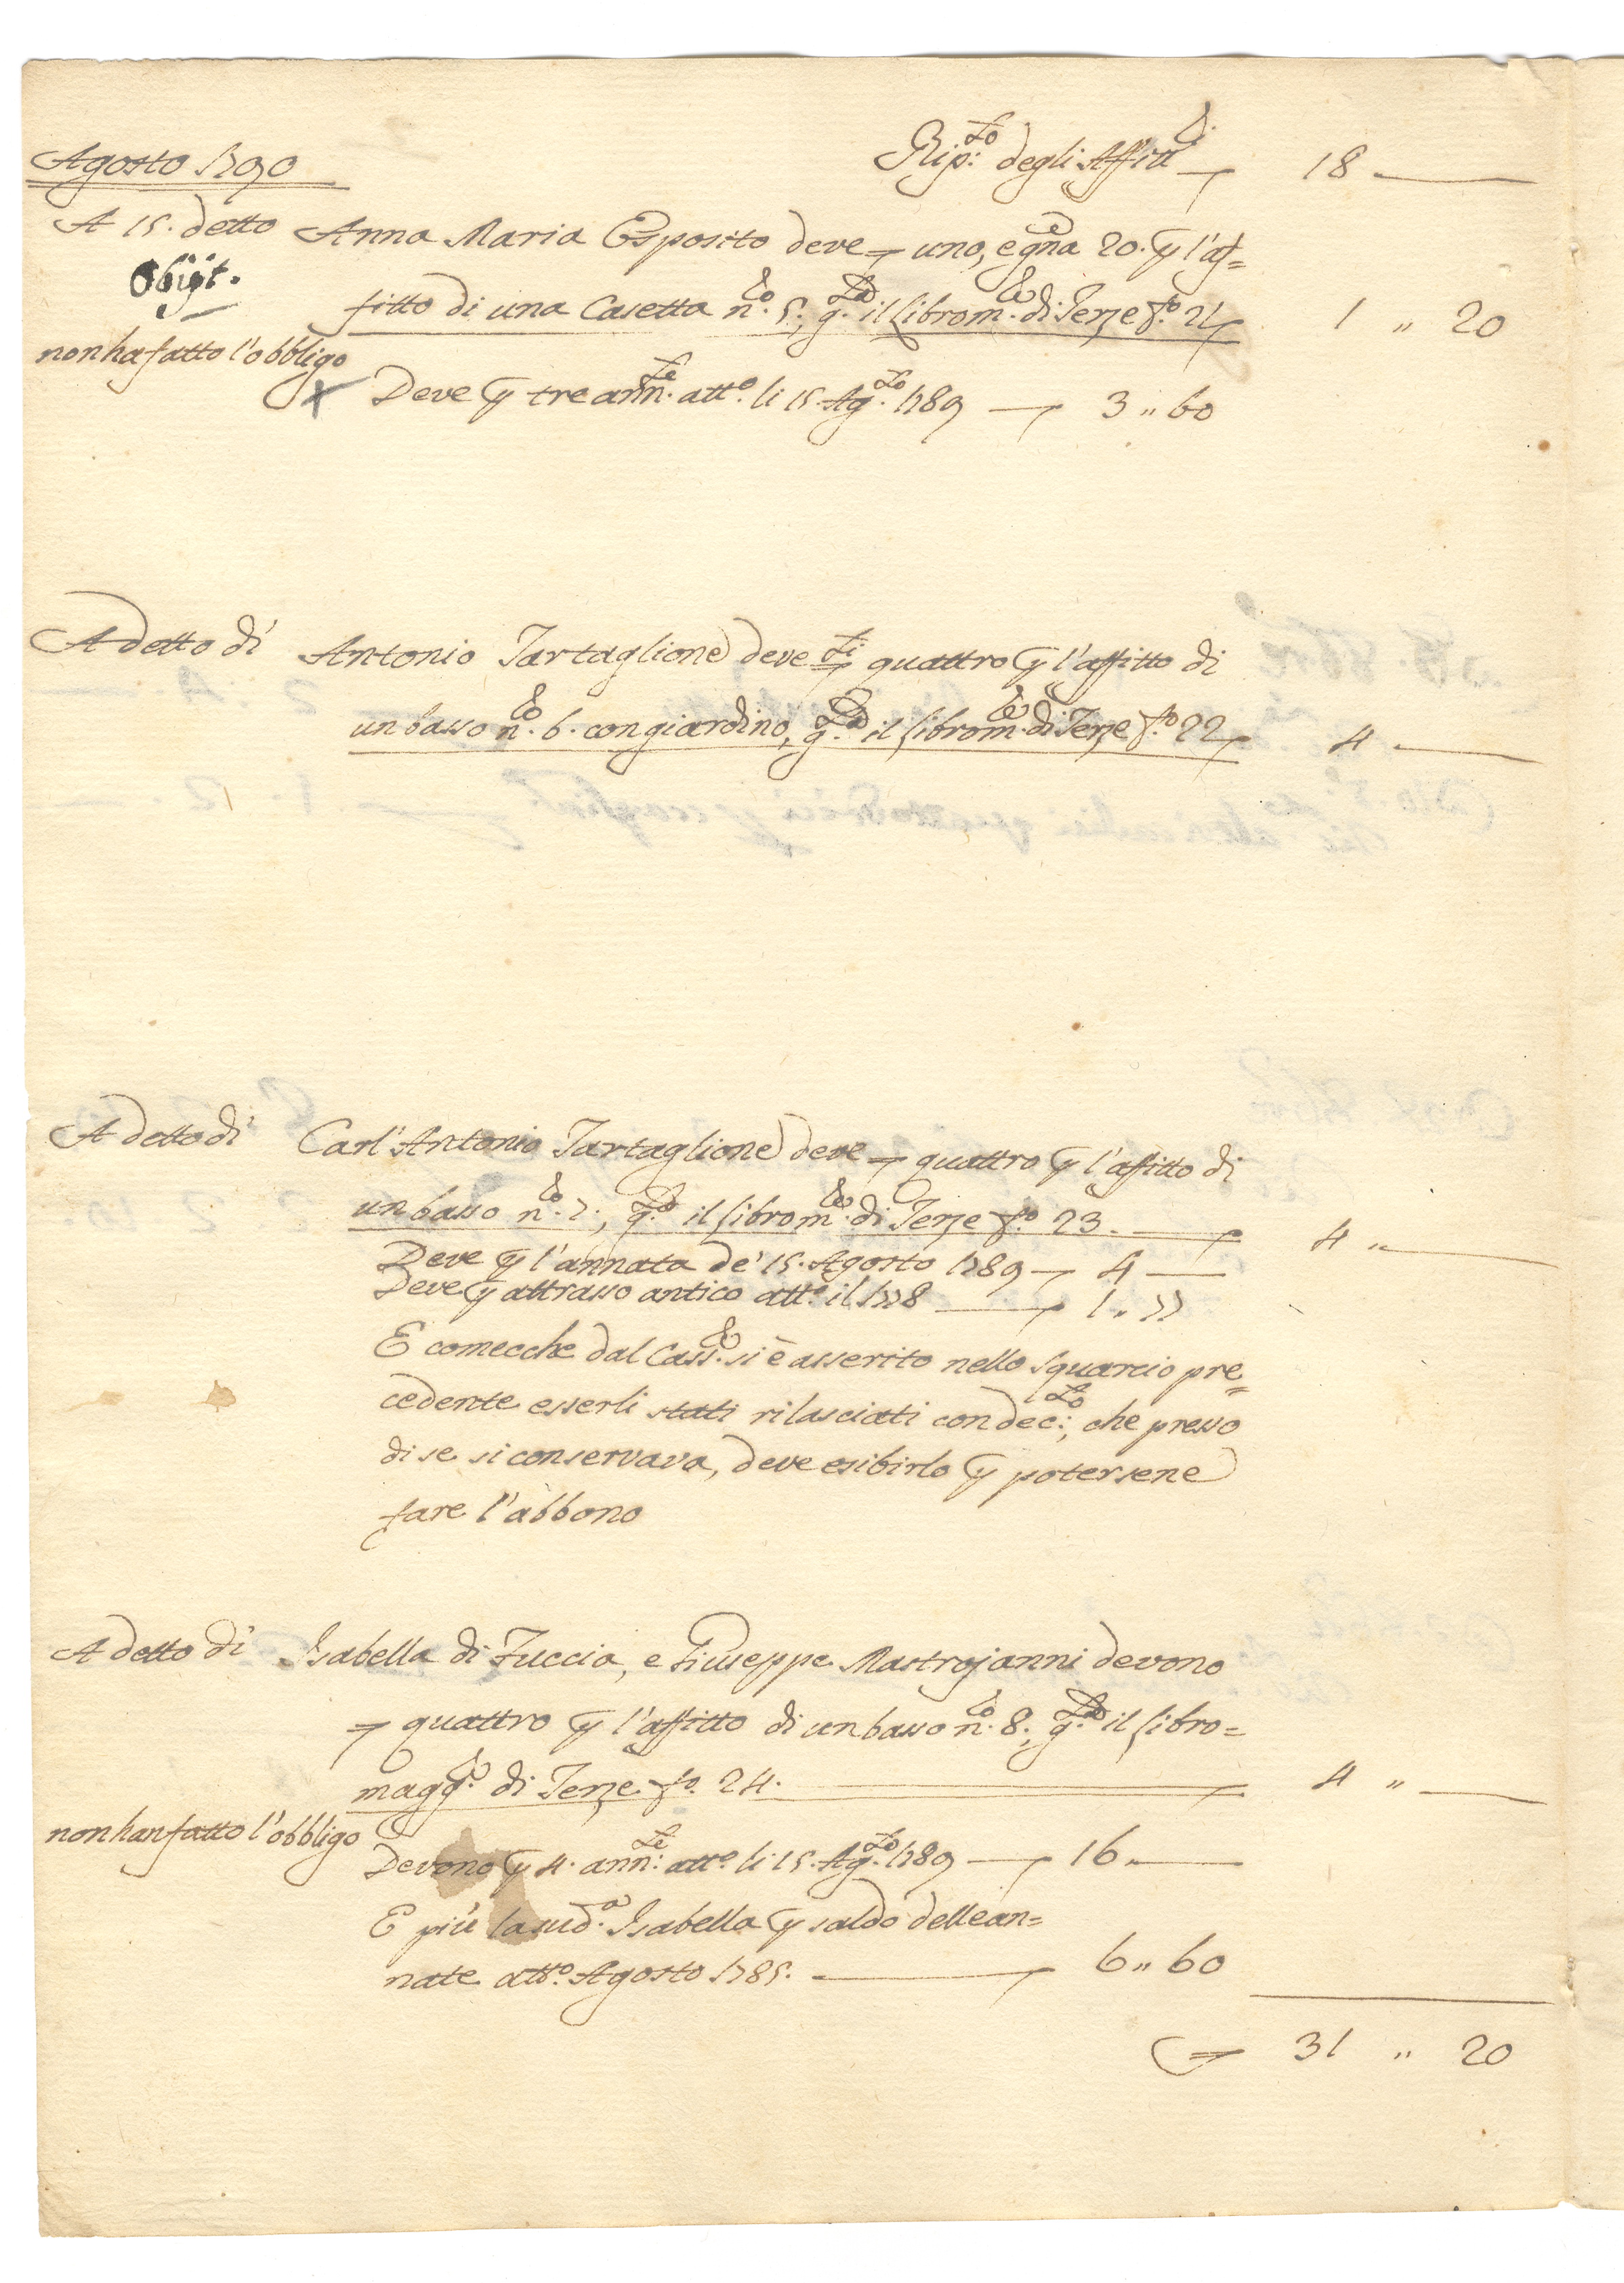 Agosto 1790
Rip:to degli Affitti 18
A 15. detto Anna Maria Esposito deve uno, e gna 20. p l'af=
Obijt.
fitto di una Casetta n.ro 5., q.to il libro m.re di Terze f.o 21 1 „ 20
non ha fatto l'obbligo
Deve p tre ann.te att.o li 15. Ag.to 1789 3 „ 60
A detto dì Antonio Tartaglione deve ti quattro p l'affitto di
un basso n.ro 6. con giardino, q.to il libro m.re di Terze f.o 22 4
A detto dì Carl'Antonio Tartaglione deve quattro p l'affitto di
un basso n.ro 7., q.to il libro m.re di Terze f.o 23. 4 „
Deve p l'annata de' 15. Agosto 1789 4
Deve p attrasso antico att.o il 1778 1 „ 77
E comecche dal Cass.re si è asserito nello squarcio pre=
cedente esserli stati rilasciati con dec:to, che presso
di se si conservava, deve esibirlo p potersene
fare l'abbono
A detto dì Isabella di Fuccia, e Giuseppe Mastrojanni devono
quattro p l'affitto di un basso n.ro 8., q.to il libro=
magg.re di Terze f.o 24. 4 „
non han fatto l'obbligo
Devono p 4. ann:te att.o li 15. Ag.to 1789 16
E più la sud.a Isabella p saldo delle an=
nate att.o Agosto 1785. 6 „ 60
31 „ 20